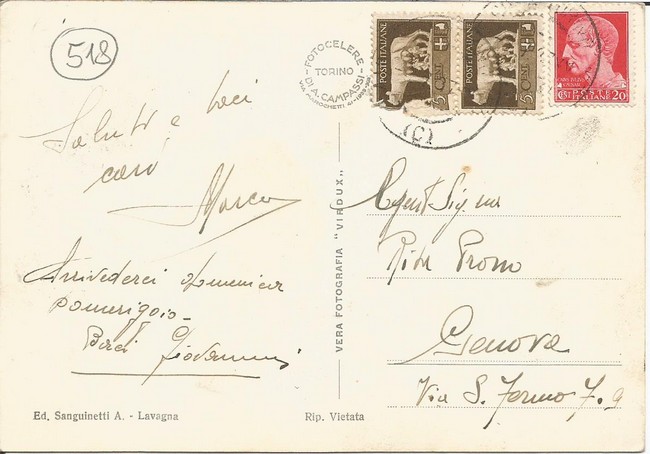 518
FOTOCELERE
TORINO
DI A. CAMPASSI
POSTE ITALIANE
5 CENT
POSTE ITALIANE
5 CENT
POSTE
ITALIANE
CENT 20
(C)
Saluti e baci
caro
Marco
Arrivederci domenica
pomeriggio
Baci Giovanni
VERA FOTOGRAFIA "VIRDUX"
Gent Sig.na
Rita
Genova
Via S. Fermo 7.9
Ed. Sanguinetti A. - Lavagna
Rip. Vietata